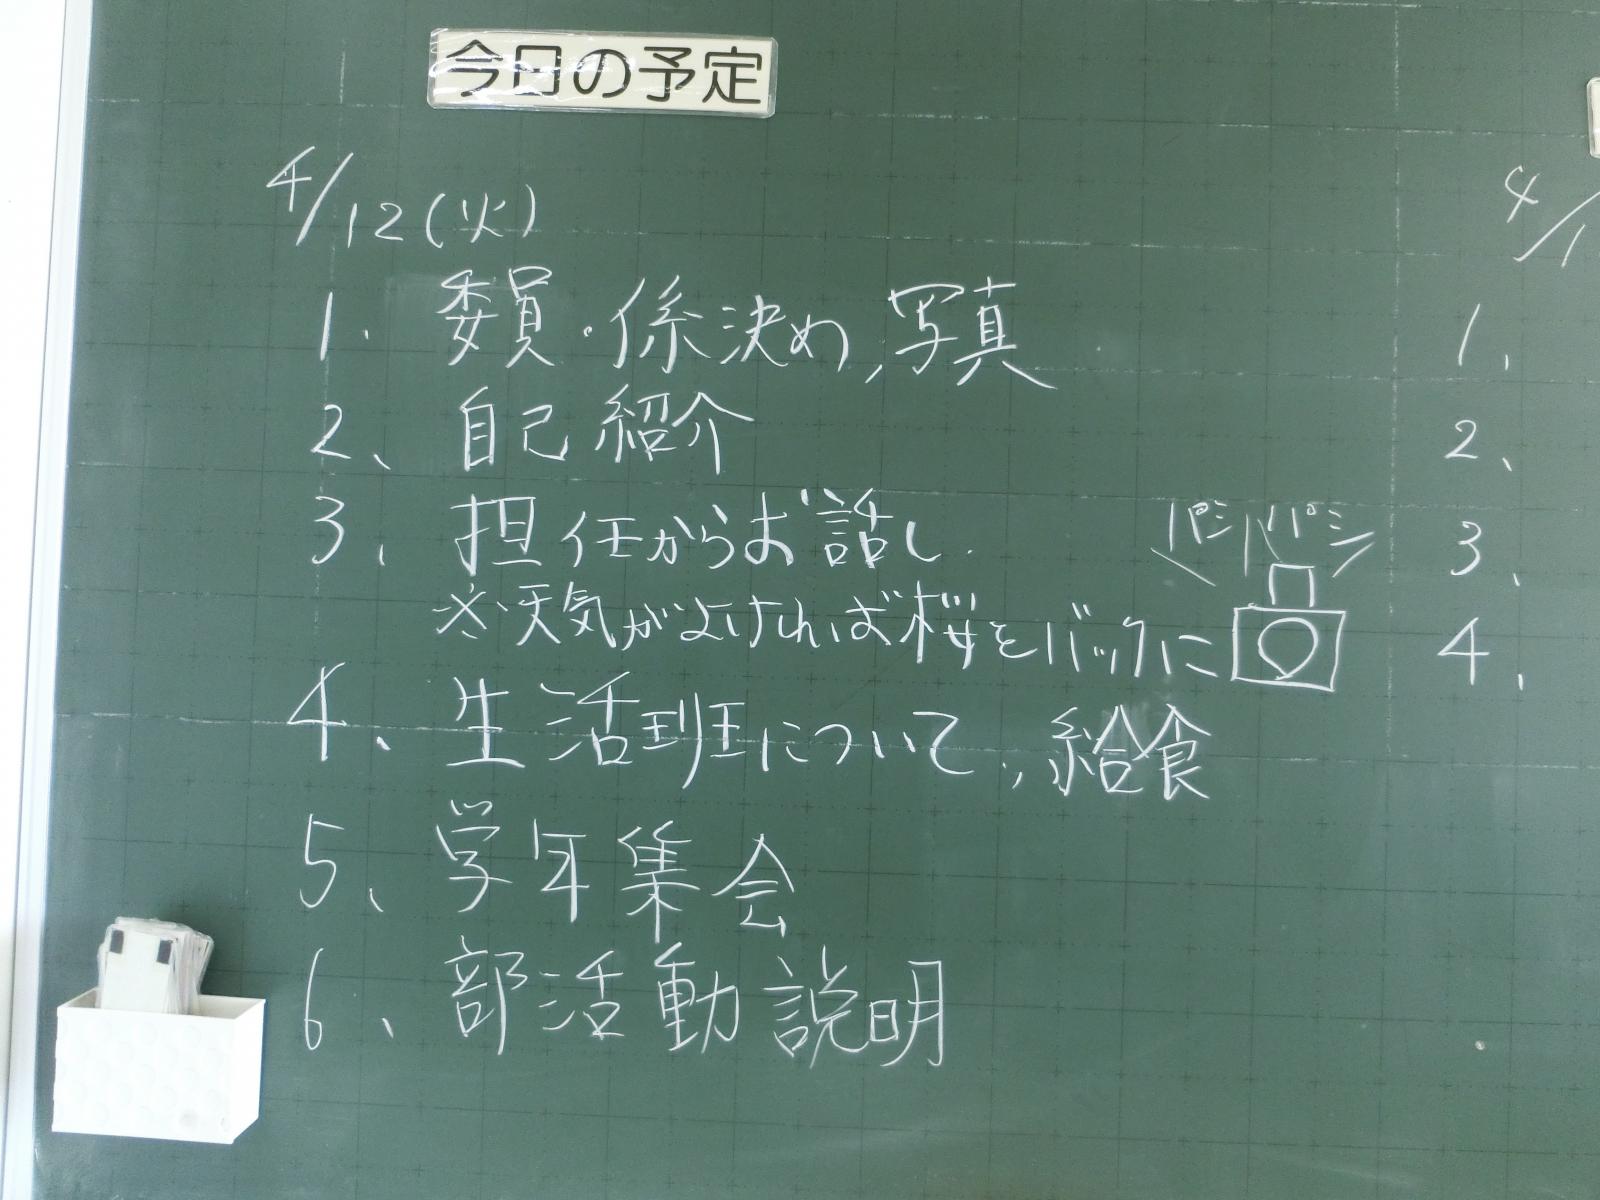 今日の予定
4/12(火)
1. 委員・係決め,写真
2、自己紹介
3、担任からお話し.
※天気がよければ桜をバックに
パシパシ
4、生活班について、給食
5、学年集会
6、部活動説明
4/1
1、
2、
3、
4、